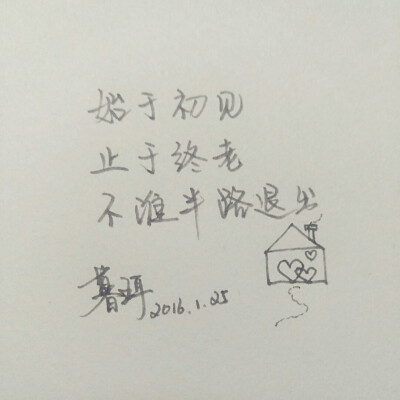 始于初见
止于终老
不准半路退出
暮珥 2016.1.25